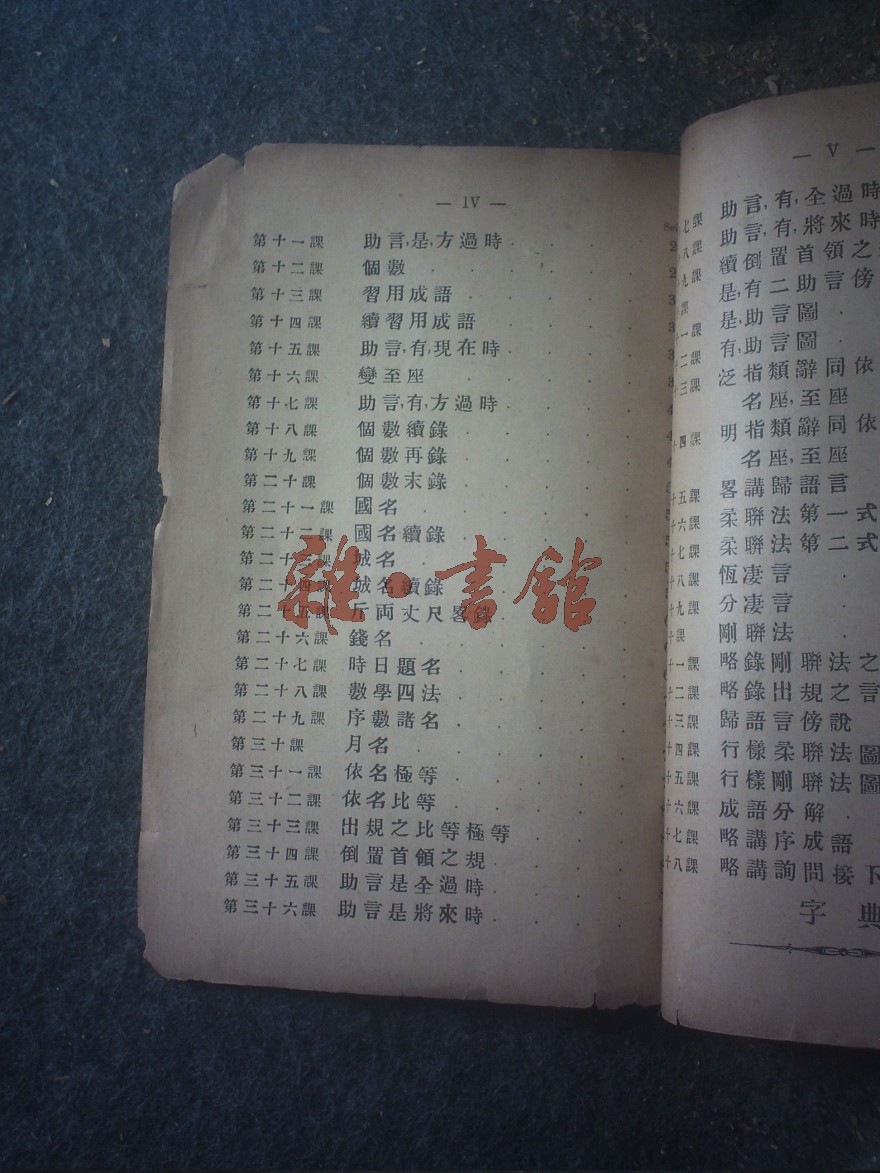 — IV —
第十一課 助言,是,方過時
第十二課 個數
第十三課 習用成語
第十四課 續習用成語
第十五課 助言,有,現在時
第十六課 變至座
第十七課 助言,有,方過時
第十八課 個數續錄
第十九課 個數再錄
第二十課 個數末錄
第二十一課 國名
第二十二課 國名續錄
第二十三課 城名
第二十四課 城名續錄
第二十五課 斤両丈尺畧錄
第二十六課 錢名
第二十七課 時日題名
第二十八課 數學四法
第二十九課 序數諸名
第三十課 月名
第三十一課 依名極等
第三十二課 依名比等
第三十三課 出規之比等極等
第三十四課 倒置首領之規
第三十五課 助言是全過時
第三十六課 助言是將來時
雜·書館
— V —
七課 助言,有,全過時
八課 助言,有,將來時
九課 續倒置首領之
課 是,有二助言傍
一課 是,助言圖
二課 有,助言圖
十三課 泛指類辭同依
名座,至座
十四課 明指類辭同依
名座,至座
十五課 畧講歸語言
十六課 柔聯法第一式
七課 柔聯法第二式
八課 恆凄言
九課 分凄言
課 剛聯法
一課 略錄剛聯法之
十二課 略錄出規之言
十三課 歸語言傍說
十四課 行樣柔聯法圖
十五課 行樣剛聯法圖
十六課 成語分解
十七課 略講序成語
十八課 略講詢問接下
字典